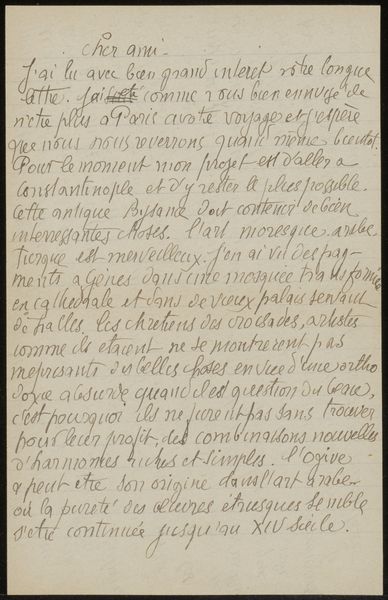 Cher ami -
J'ai lu avec bien grand interet votre longue
lettre. J'ai été comme vous bien ennuyé de
n'etre plus a Paris a votre voyage et j'espère
que nous nous reverrons quand même bientot.
Pour le moment mon projet est d'aller a
Constantinople et d'y rester le plus possible.
Cette antique Bysance doit contenir de bien
interressantes choses. l'art moresque. arabe
Turque est merveilleux. J'en ai vu des frag-
ments a Gênes dans une mosquée transformée
en cathédrale et dans de vieux palais servant
de halles. les chretiens des croisades, artistes
comme ils etaient ne se montrerent pas
meprisants des belles choses en vue d'une ortho
doxie absurde quand il est question du beau,
c'est pourquoi ils ne furent pas sans trouver
pour leur profit, des combinaisons nouvelles
d'harmonies riches et simples. l'ogive
a peut etre son origine dans l'art arabe
où la pureté des œuvres étrusques semble
s'etre continuée jusqu'au XIV siècle.